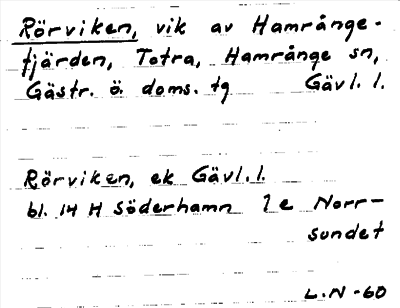 Rörviken, vik av Hamrånge-
fjärden, Totra, Hamrånge sn,
Gästr. ö. doms. tg Gävl. l.
Rörviken, ek Gävl. l.
bl. 14 H Söderhamn 1 e Norr-
sundet
L.N -60